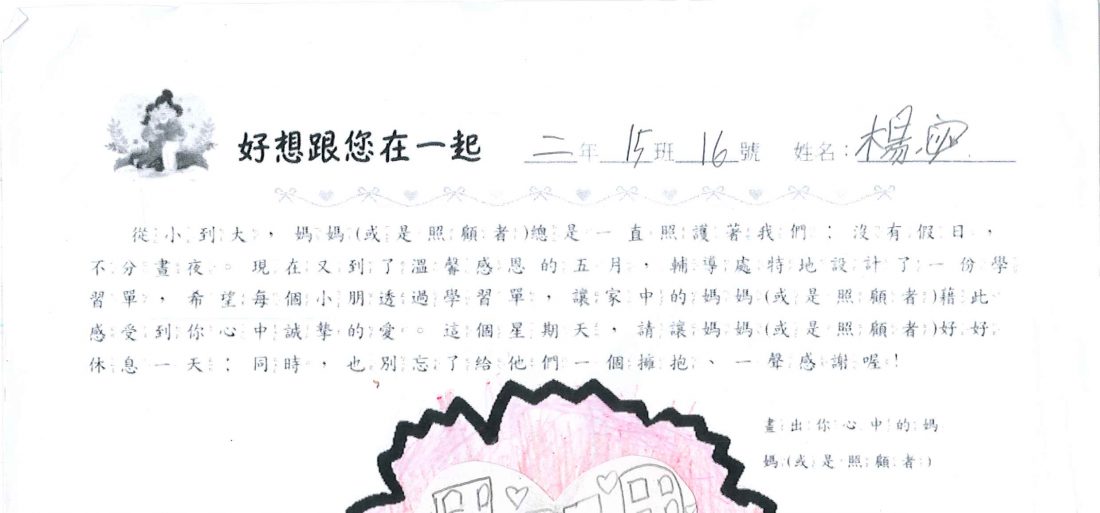 好想跟您在一起 二年 15班 16號 姓名：楊
從小到大，媽媽(或是照顧者)總是一直照護著我們：沒有假日，
不分晝夜。現在又到了溫馨感恩的五月，輔導處特地設計了一份學
習單，希望每個小朋透過學習單，讓家中的媽媽(或是照顧者)藉此
感受到你心中誠摯的愛。這個星期天，請讓媽媽(或是照顧者)好好
休息一天：同時，也別忘了給他們一個擁抱、一聲感謝喔！
畫出你心中的媽
媽(或是照顧者)